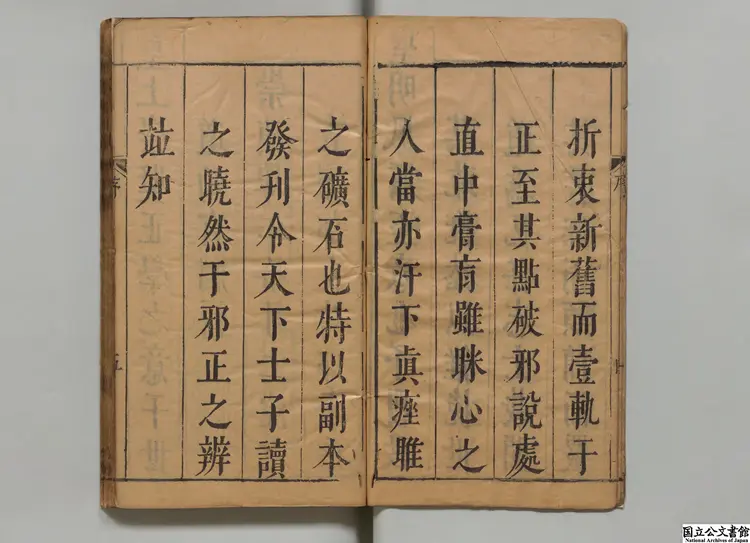 折衷新舊而壹軌于
正至其點破邪說處
直中膏肓雖眯心之
人當亦汗下眞痤雎
之礦石也特以副本
發刊令天下士子讀
之曉然于邪正之辨
竝知
序
五
国立公文書館
National Archives of Japan